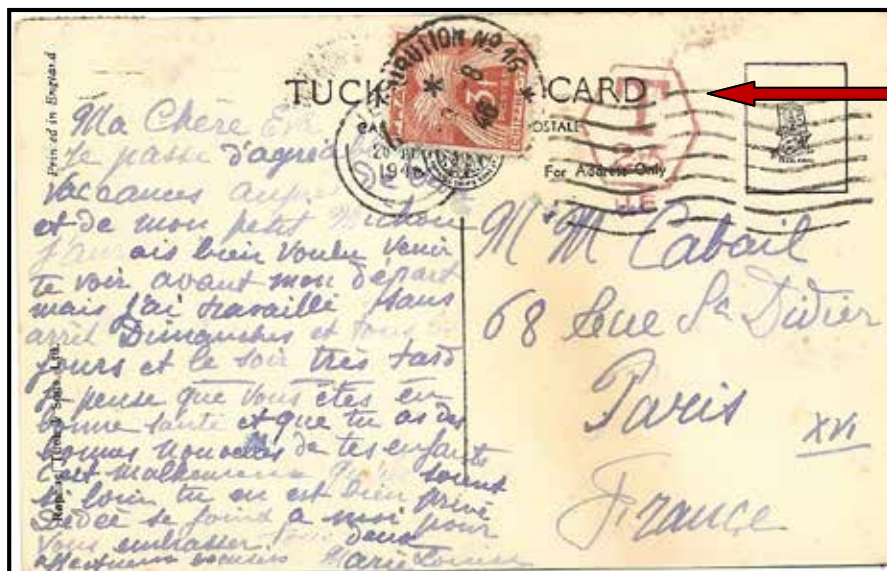 TUCK CARD
Printed in England
DISTRIBUTION No 16
3F
8
48
CHIFFRE-TAXE
POSTALE
194
For Address Only
T
Ma Chère
Je passe d'agréa
vacances auprès
et de mon petit
J'aurais bien voulu venir
te voir avant mon départ
mais j'ai travaillé sans
arrêt Dimanches et tous
jours et le soir très tard
je pense que vous êtes en
bonne santé et que tu as des
bonnes nouvelles de tes enfants
c'est malheureux soient
si loin tu en est bien privé
Dédée se joind a moi pour
vous embrasser tous deux
affectueux baisers Marie Louise
Mr M Cabail
68 Rue St Didier
Paris
XVI
France